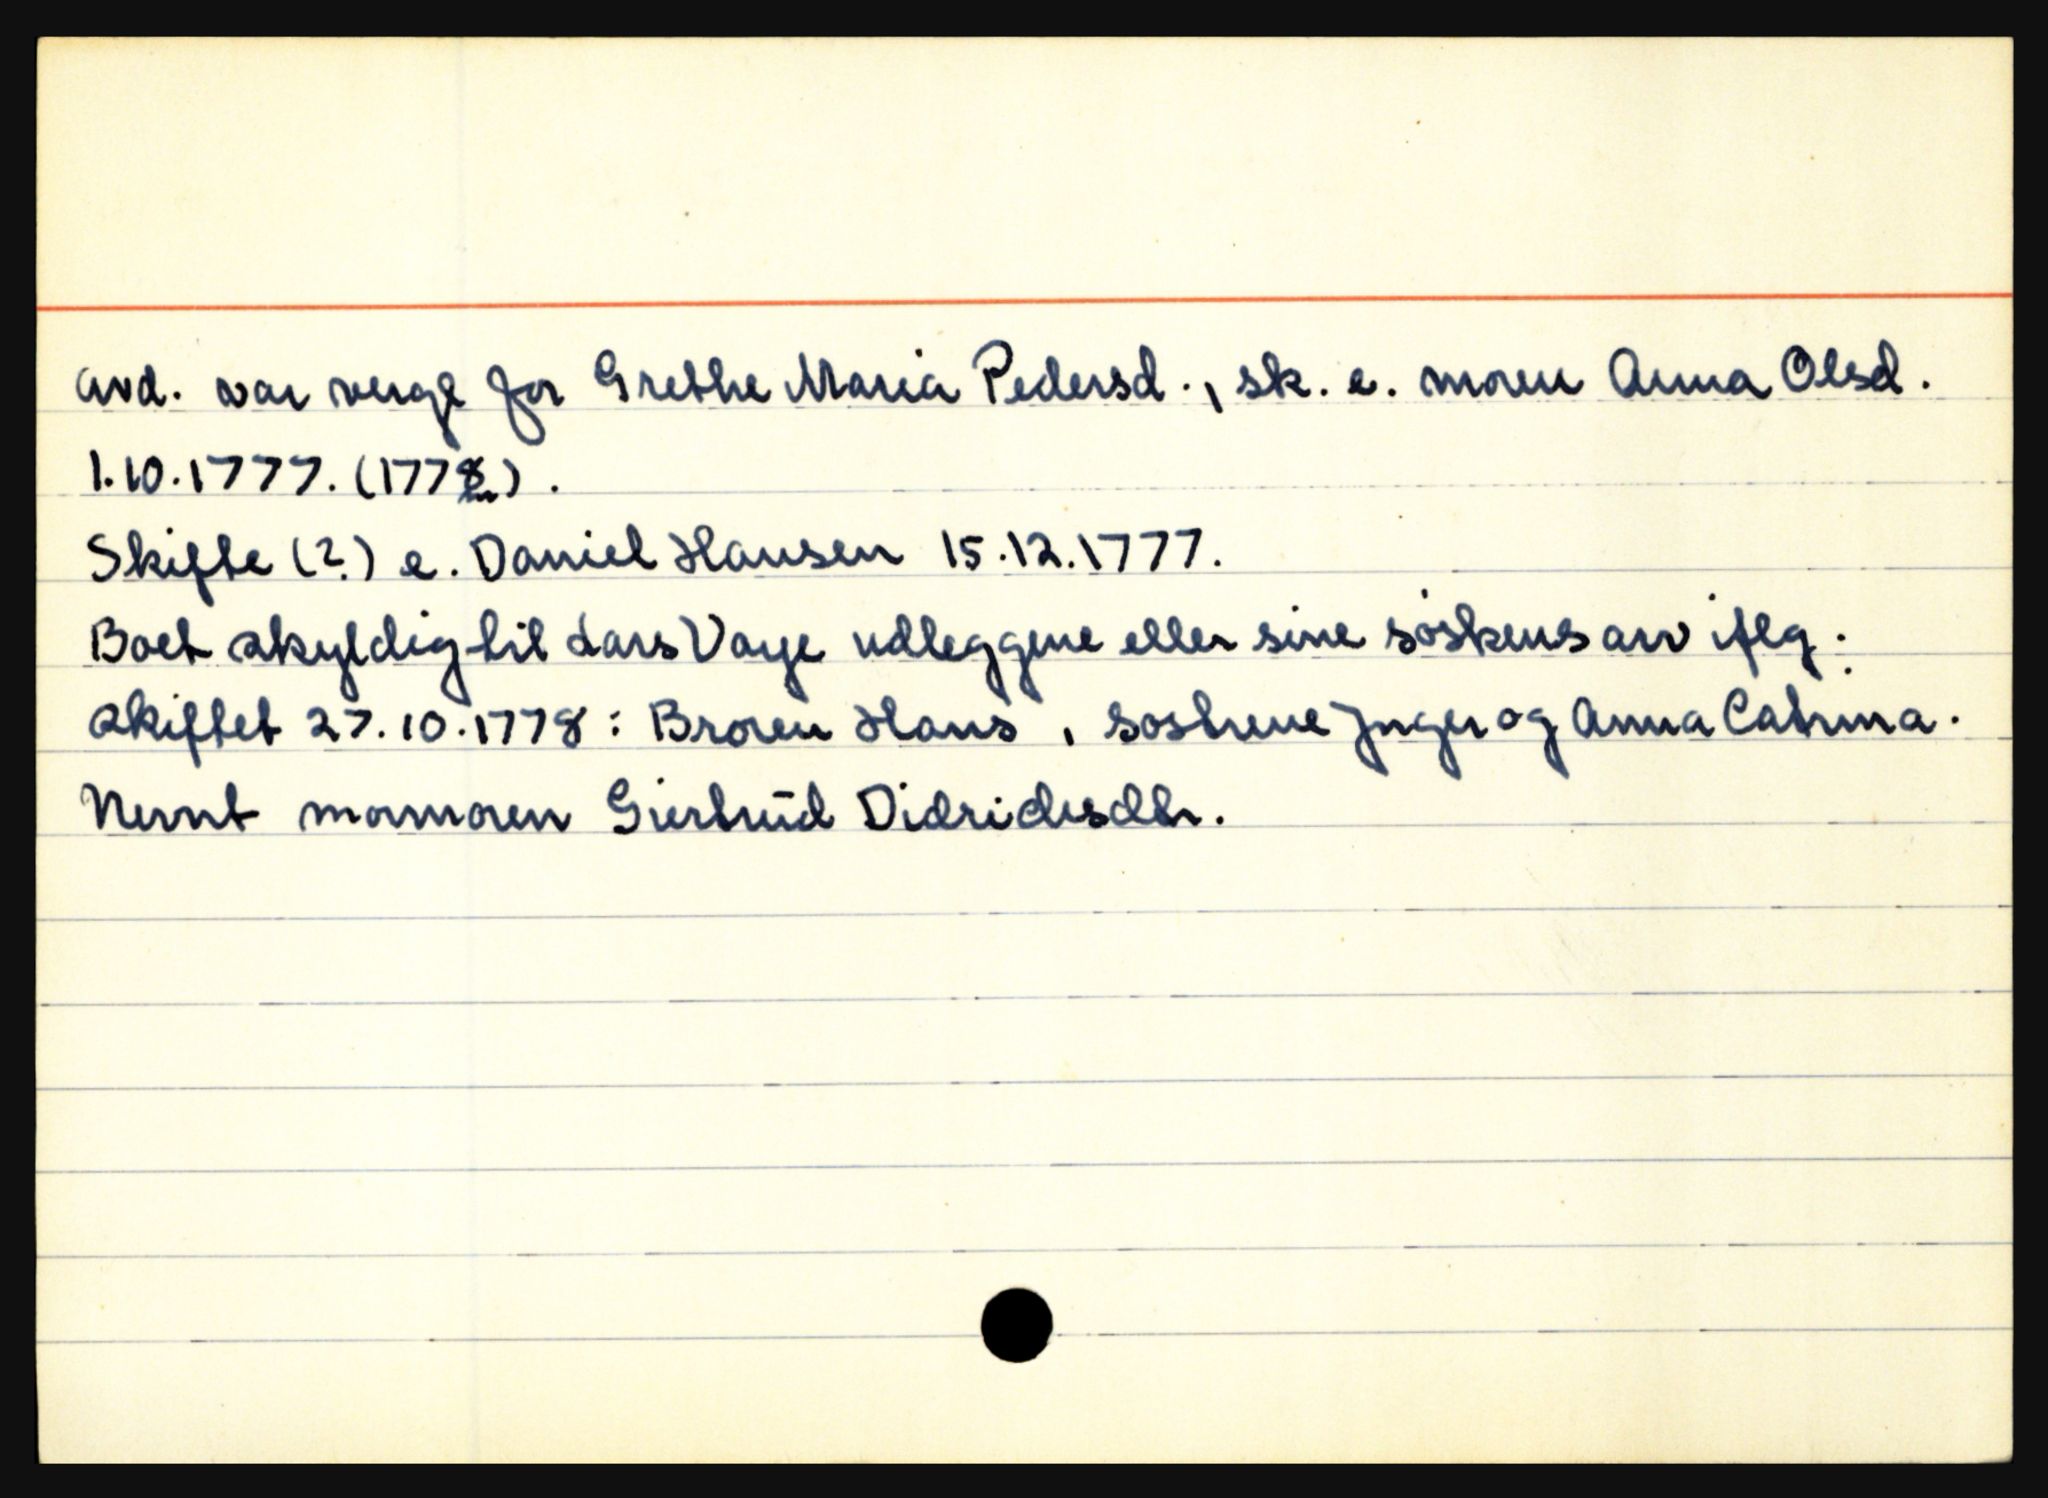 avd. var verge for Grethe Maria Pedersd., sk. e. moren Anna Olsd.
1.10.1777. (1778).
Skifte (?) e. Daniel Hansen 15.12.1777.
Boet skyldig til Lars Voye udleggene eller sine søskens arv iflg.
skiftet 27.10.1778: Broren Hans, søstrene Jnger og Anna Catrina.
Nevnt mormoren Giertrud Didrichsdtr.